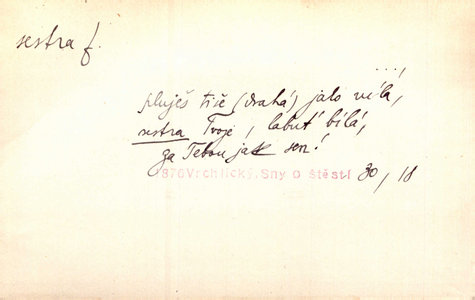 sestra f.
...,
pluješ tiše (drahá) jako víla,
sestra Tvoje, labuť bílá,
za Tebou jak sen!
876 Vrchlický, Sny o štěstí 30, 18